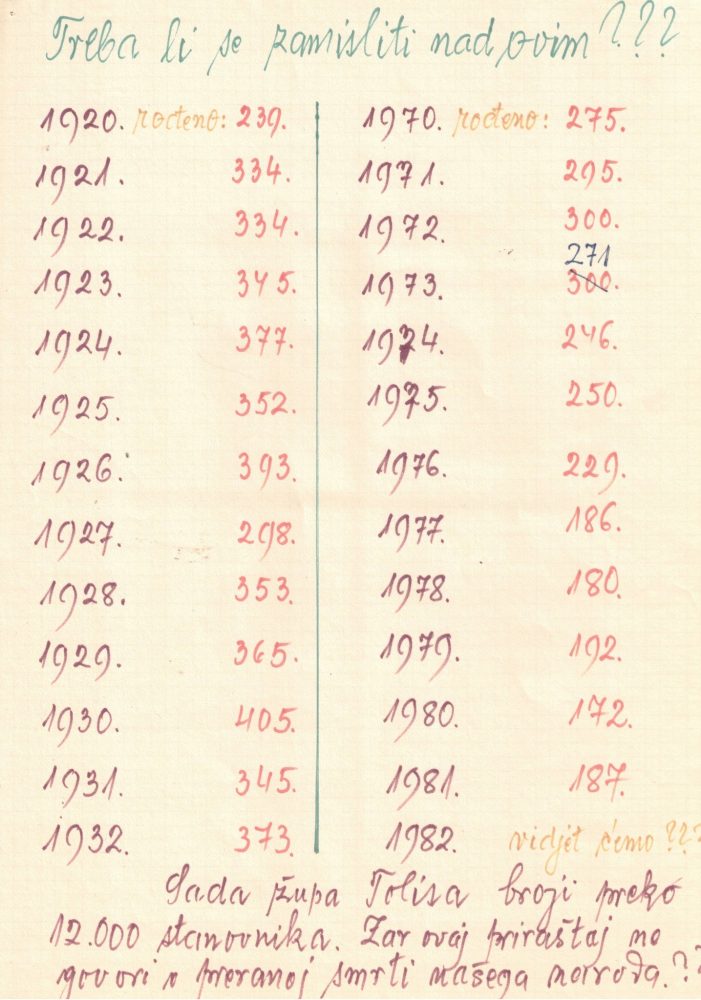 Treba li se zamisliti nad ovim ???
1920. rođeno: 239. 1970. rođeno: 275.
1921. 334. 1971. 295.
1922. 334. 1972. 300.
271
1923. 345. 1973. 300.
1924. 377. 1974. 246.
1925. 352. 1975. 250.
1926. 393. 1976. 229.
1927. 298. 1977. 186.
1928. 353. 1978. 180.
1929. 365. 1979. 192.
1930. 405. 1980. 172.
1931. 345. 1981. 187.
1932. 373. 1982. vidjet ćemo ???
Sada župa Tolisa broji preko
12.000 stanovnika. Zar ovaj priraštaj ne
govori o preranoj smrti našega naroda.??